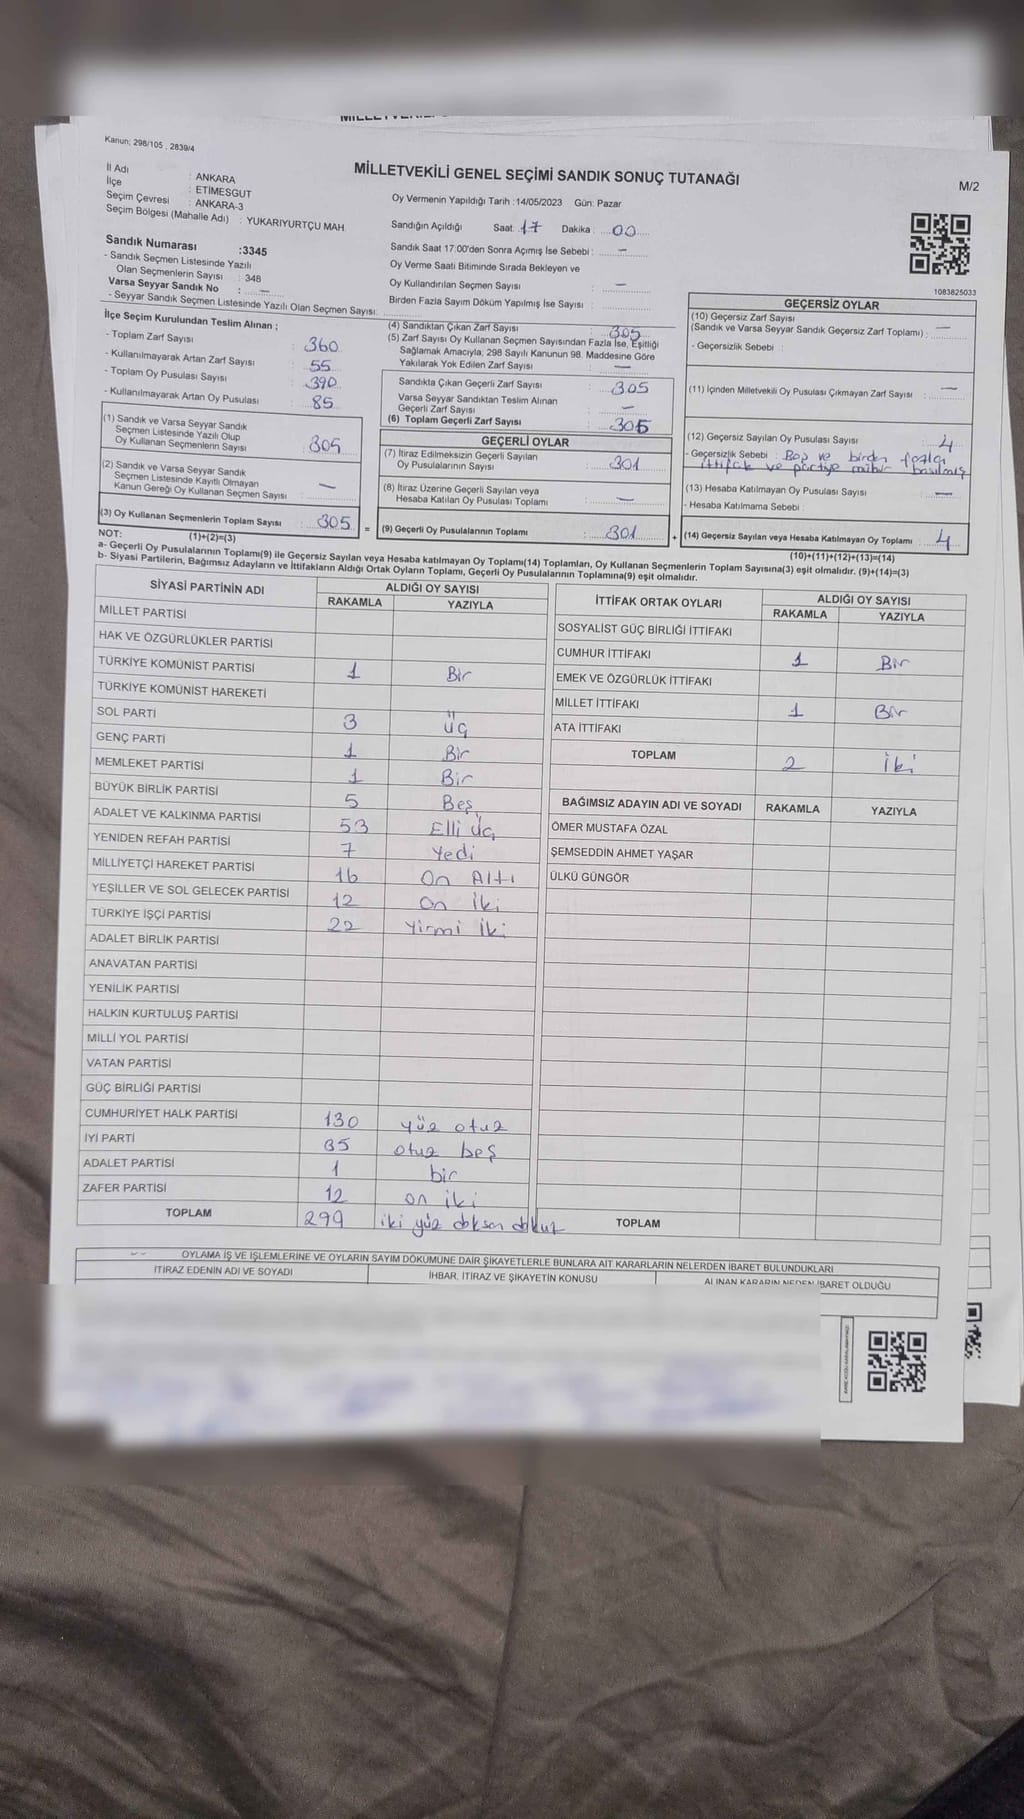 Kanun; 298/105 , 2839/4
MİLLETVEKİLİ GENEL SEÇİMİ SANDIK SONUÇ TUTANAĞI
M/2
İl Adı : ANKARA
İlçe : ETİMESGUT
Seçim Çevresi : ANKARA-3
Seçim Bölgesi (Mahalle Adı) : YUKARIYURTÇU MAH.
Oy Vermenin Yapıldığı Tarih :14/05/2023 Gün: Pazar
Sandığın Açıldığı Saat: 17 Dakika : 00
Sandık Saat 17:00'den Sonra Açımış İse Sebebi : –
Oy Verme Saati Bitiminde Sırada Bekleyen ve
Oy Kullandırılan Seçmen Sayısı : –
Birden Fazla Sayım Döküm Yapılmış İse Sayısı :
1083825033
Sandık Numarası :3345
- Sandık Seçmen Listesinde Yazılı
Olan Seçmenlerin Sayısı : 348
Varsa Seyyar Sandık No : –
- Seyyar Sandık Seçmen Listesinde Yazılı Olan Seçmen Sayısı:
İlçe Seçim Kurulundan Teslim Alınan ;
- Toplam Zarf Sayısı : 360
- Kullanılmayarak Artan Zarf Sayısı : 55
- Toplam Oy Pusulası Sayısı : 390
- Kullanılmayarak Artan Oy Pusulası : 85
(1) Sandık ve Varsa Seyyar Sandık
Seçmen Listesinde Yazılı Olup
Oy Kullanan Seçmenlerin Sayısı : 305
(2) Sandık ve Varsa Seyyar Sandık
Seçmen Listesinde Kayıtlı Olmayan
Kanun Gereği Oy Kullanan Seçmen Sayısı : –
(3) Oy Kullanan Seçmenlerin Toplam Sayısı : 305 =
(1)+(2)=(3)
(4) Sandıktan Çıkan Zarf Sayısı : 305
(5) Zarf Sayısı Oy Kullanan Seçmen Sayısından Fazla İse, Eşitliği
Sağlamak Amacıyla; 298 Sayılı Kanunun 98. Maddesine Göre
Yakılarak Yok Edilen Zarf Sayısı : –
Sandıkta Çıkan Geçerli Zarf Sayısı : 305
Varsa Seyyar Sandıktan Teslim Alınan
Geçerli Zarf Sayısı : –
(6) Toplam Geçerli Zarf Sayısı : 305
GEÇERLİ OYLAR
(7) İtiraz Edilmeksizin Geçerli Sayılan
Oy Pusulalarının Sayısı : 301
(8) İtiraz Üzerine Geçerli Sayılan veya
Hesaba Katılan Oy Pusulaları Toplamı : –
(9) Geçerli Oy Pusulalarının Toplamı : 301 +
GEÇERSİZ OYLAR
(10) Geçersiz Zarf Sayısı
(Sandık ve Varsa Seyyar Sandık Geçersiz Zarf Toplamı) : –
- Geçersizlik Sebebi :
(11) İçinden Milletvekili Oy Pusulası Çıkmayan Zarf Sayısı : –
(12) Geçersiz Sayılan Oy Pusulası Sayısı : 4
- Geçersizlik Sebebi : Boş ve birden fazla
ittifak ve partiye mühür basılmış
(13) Hesaba Katılmayan Oy Pusulası Sayısı : –
- Hesaba Katılmama Sebebi :
(14) Geçersiz Sayılan veya Hesaba Katılmayan Oy Toplamı : 4
(10)+(11)+(12)+(13)=(14)
NOT:
a- Geçerli Oy Pusulalarının Toplamı(9) ile Geçersiz Sayılan veya Hesaba katılmayan Oy Toplamı(14) Toplamları, Oy Kullanan Seçmenlerin Toplam Sayısına(3) eşit olmalıdır. (9)+(14)=(3)
b- Siyasi Partilerin, Bağımsız Adayların ve İttifakların Aldığı Ortak Oyların Toplamı, Geçerli Oy Pusulalarının Toplamına(9) eşit olmalıdır.
SİYASİ PARTİNİN ADI ALDIĞI OY SAYISI
RAKAMLA YAZIYLA
MİLLET PARTİSİ
HAK VE ÖZGÜRLÜKLER PARTİSİ
TÜRKİYE KOMÜNİST PARTİSİ 1 Bir
TÜRKİYE KOMÜNİST HAREKETİ
SOL PARTİ 3 üç
GENÇ PARTİ 1 Bir
MEMLEKET PARTİSİ 1 Bir
BÜYÜK BİRLİK PARTİSİ 5 Beş
ADALET VE KALKINMA PARTİSİ 53 Elli Üç
YENİDEN REFAH PARTİSİ 7 Yedi
MİLLİYETÇİ HAREKET PARTİSİ 16 On Altı
YEŞİLLER VE SOL GELECEK PARTİSİ 12 On İki
TÜRKİYE İŞÇİ PARTİSİ 22 Yirmi İki
ADALET BİRLİK PARTİSİ
ANAVATAN PARTİSİ
YENİLİK PARTİSİ
HALKIN KURTULUŞ PARTİSİ
MİLLİ YOL PARTİSİ
VATAN PARTİSİ
GÜÇ BİRLİĞİ PARTİSİ
CUMHURİYET HALK PARTİSİ 130 yüz otuz
İYİ PARTİ 35 otuz beş
ADALET PARTİSİ 1 bir
ZAFER PARTİSİ 12 on iki
TOPLAM 299 iki yüz doksan dokuz
İTTİFAK ORTAK OYLARI ALDIĞI OY SAYISI
RAKAMLA YAZIYLA
SOSYALİST GÜÇ BİRLİĞİ İTTİFAKI
CUMHUR İTTİFAKI 1 Bir
EMEK VE ÖZGÜRLÜK İTTİFAKI
MİLLET İTTİFAKI 1 Bir
ATA İTTİFAKI
TOPLAM 2 İki
BAĞIMSIZ ADAYIN ADI VE SOYADI RAKAMLA YAZIYLA
ÖMER MUSTAFA ÖZAL
ŞEMSEDDİN AHMET YAŞAR
ÜLKÜ GÜNGÖR
TOPLAM
OYLAMA İŞ VE İŞLEMLERİNE VE OYLARIN SAYIM DÖKÜMÜNE DAİR ŞİKAYETLERLE BUNLARA AİT KARARLARIN NELERDEN İBARET BULUNDUKLARI
İTİRAZ EDENİN ADI VE SOYADI İHBAR, İTİRAZ VE ŞİKAYETİN KONUSU ALINAN KARARIN NEDEN İBARET OLDUĞU